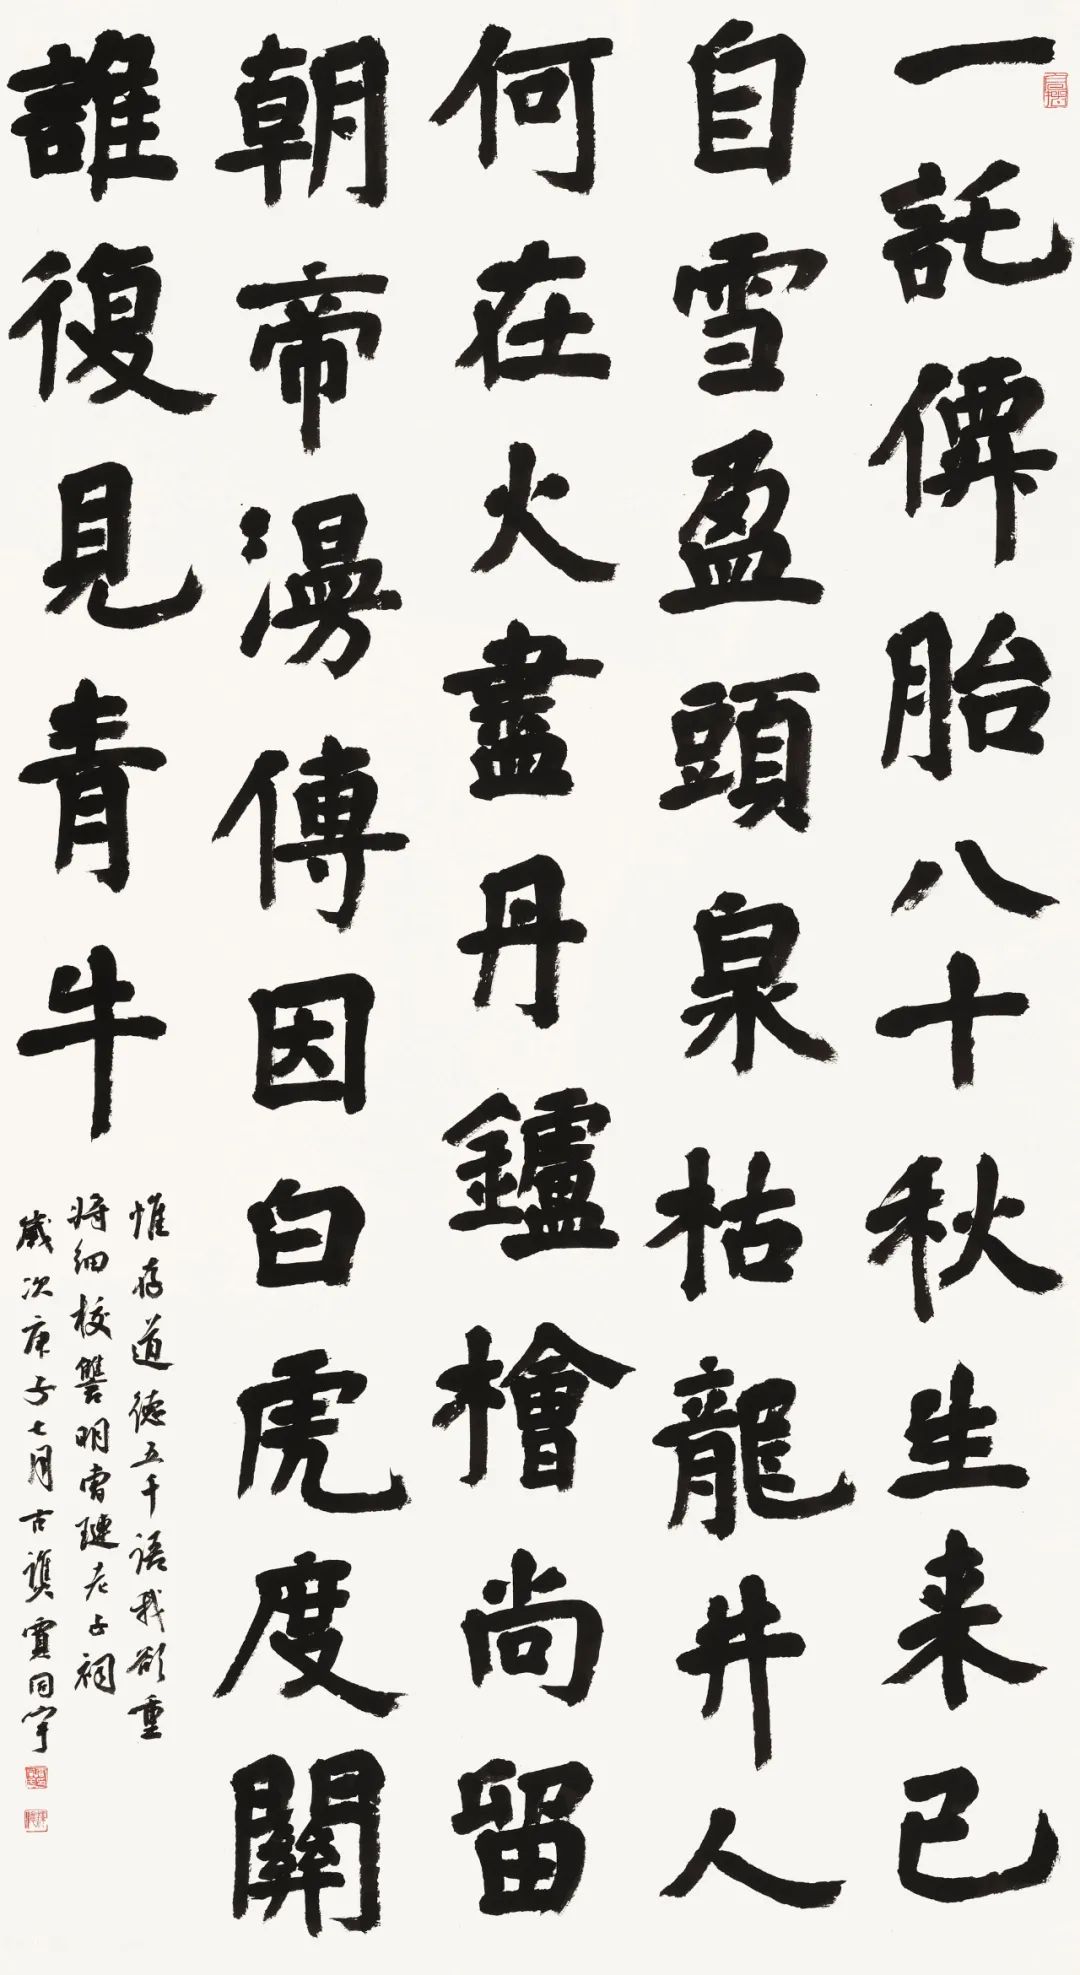 一託僊胎八十秋生来已
自雪盈頭泉枯龍井人
何在火盡丹鑪檜尚留
朝帝漫傳因白虎度關
誰復見青牛
惟存道德五千語我欲重
将細校讐明曹璉老子祠
歲次庚子七月古譙賈同宇